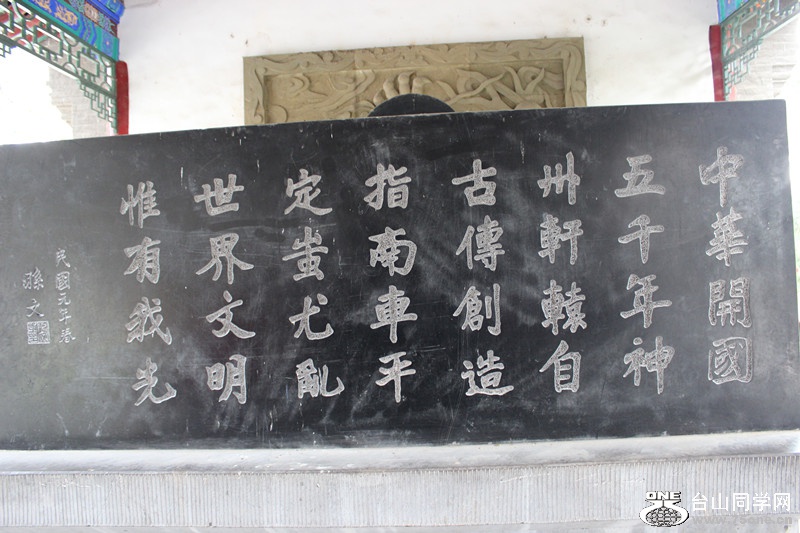 中華開國
五千年神
州軒轅自
古傳創造
指南車平
定蚩尤亂
世界文明
惟有我先
民國元年春
孫文
ONE 台山同学网